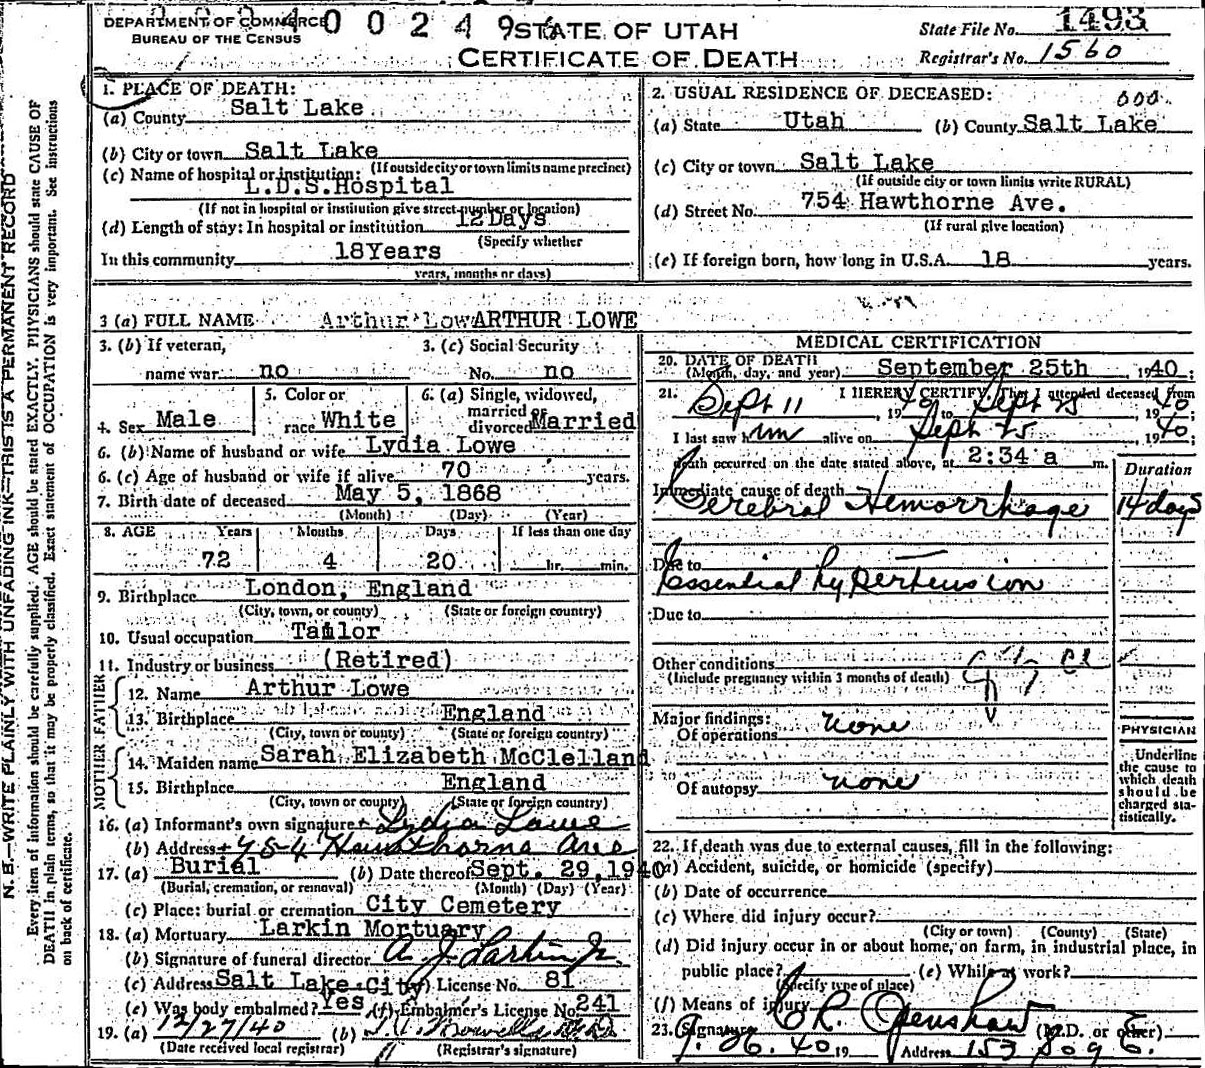 DEPARTMENT OF COMMERCE
BUREAU OF THE CENSUS
40 0 2 4 9
STATE OF UTAH
CERTIFICATE OF DEATH
State File No. 1493
Registrar's No. 1560
N. B.—WRITE PLAINLY WITH UNFADING INK—THIS IS A PERMANENT RECORD
Every item of information should be carefully supplied. AGE should be stated EXACTLY. PHYSICIANS should state CAUSE OF
DEATH in plain terms, so that it may be properly classified. Exact statement of OCCUPATION is very important. See instructions
on back of certificate.
1. PLACE OF DEATH:
(a) County Salt Lake
(b) City or town Salt Lake
(If outside city or town limits name precinct)
(c) Name of hospital or institution:
L.D.S. Hospital
(If not in hospital or institution give street number or location)
(d) Length of stay: In hospital or institution 12 Days
(Specify whether
In this community 18 Years
years, months or days)
2. USUAL RESIDENCE OF DECEASED: 000
(a) State Utah (b) County Salt Lake
(c) City or town Salt Lake
(If outside city or town limits write RURAL)
(d) Street No. 754 Hawthorne Ave.
(If rural give location)
(e) If foreign born, how long in U.S.A. 18 years.
3 (a) FULL NAME Arthur Low ARTHUR LOWE
3. (b) If veteran,
name war no
3. (c) Social Security
No. no
4. Sex Male
5. Color or
race White
6. (a) Single, widowed,
married or
divorced Married
6. (b) Name of husband or wife Lydia Lowe
6. (c) Age of husband or wife if alive 70 years.
7. Birth date of deceased May 5, 1868
(Month) (Day) (Year)
8. AGE Years Months Days If less than one day
72 4 20 hr. min.
9. Birthplace London, England
(City, town, or county) (State or foreign country)
10. Usual occupation Tailor
11. Industry or business (Retired)
FATHER
12. Name Arthur Lowe
13. Birthplace England
(City, town or county) (State or foreign country)
MOTHER
14. Maiden name Sarah Elizabeth McClelland
15. Birthplace England
(City, town or county) (State or foreign country)
16. (a) Informant's own signature Lydia Lowe
(b) Address 754 Hawthorne Ave
17. (a) Burial (b) Date thereof Sept. 29, 1940
(Burial, cremation, or removal) (Month) (Day) (Year)
(c) Place: burial or cremation City Cemetery
18. (a) Mortuary Larkin Mortuary
(b) Signature of funeral director A. J. Larkin Jr.
(c) Address Salt Lake City License No. 81
(e) Was body embalmed? Yes (f) Embalmer's License No. 241
19. (a) 12/27/40 (b)
(Date received local registrar) (Registrar's signature)
MEDICAL CERTIFICATION
20. DATE OF DEATH
(Month, day, and year) September 25th 1940;
21. I HEREBY CERTIFY, That I attended deceased from
Sept 11, 1940 to Sept 25, 1940;
I last saw him alive on Sept 25, 1940;
death occurred on the date stated above, at 2:34 a m.
Duration
Immediate cause of death
Cerebral Hemorrhage 14 days
Due to
Essential hypertension
Due to
Other conditions
(Include pregnancy within 3 months of death)
Major findings:
Of operations none
Of autopsy none
PHYSICIAN
Underline
the cause to
which death
should be
charged sta-
tistically.
22. If death was due to external causes, fill in the following:
(a) Accident, suicide, or homicide (specify)
(b) Date of occurrence
(c) Where did injury occur?
(City or town) (County) (State)
(d) Did injury occur in or about home, on farm, in industrial place, in
public place? (e) While at work?
(Specify type of place)
(f) Means of injury
23. Signature R. Openshaw (M.D. or other)
9. 26. 40 19 Address 153 So 9 E.